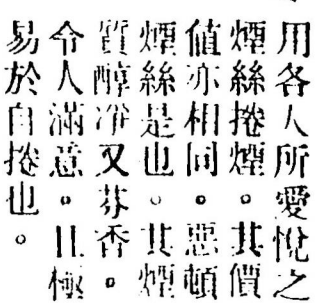 用各人所愛悅之
煙絲捲煙。其價
值亦相同。惡頓
煙絲是也。其煙
質醇净又芬香。
令人滿意。且極
易於自捲也。